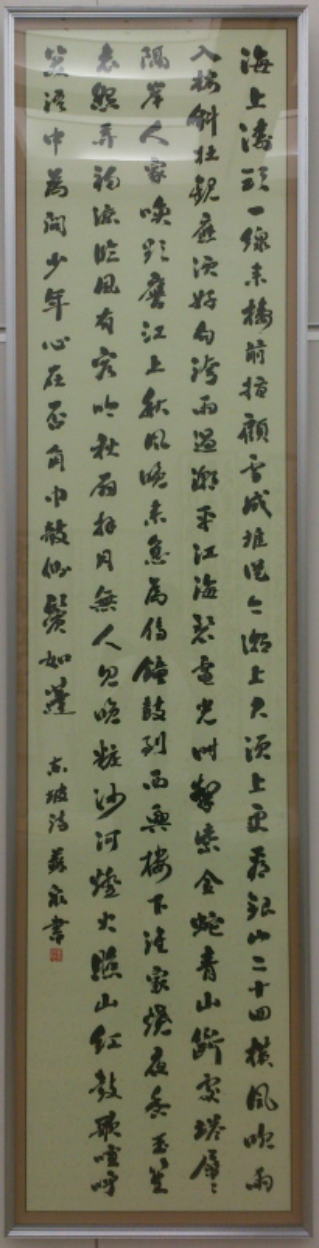 海上濤頭一線來樓前指顧雪成堆從今潮上君須上更看銀山二十回橫風吹雨
入樓斜壯觀應須好句誇雨過潮平江海碧電光時掣紫金蛇青山斷處塔層々
隔岸人家喚欲應江上秋風晚來急為傳鐘鼓到西興樓下誰家燒夜香玉笙
哀怨弄初涼臨風有客吟秋扇拜月無人見晚粧沙河燈火照山紅鼓歌喧呼
笑語中為問少年心在否角巾欹側鬢如蓬
東坡詩 書